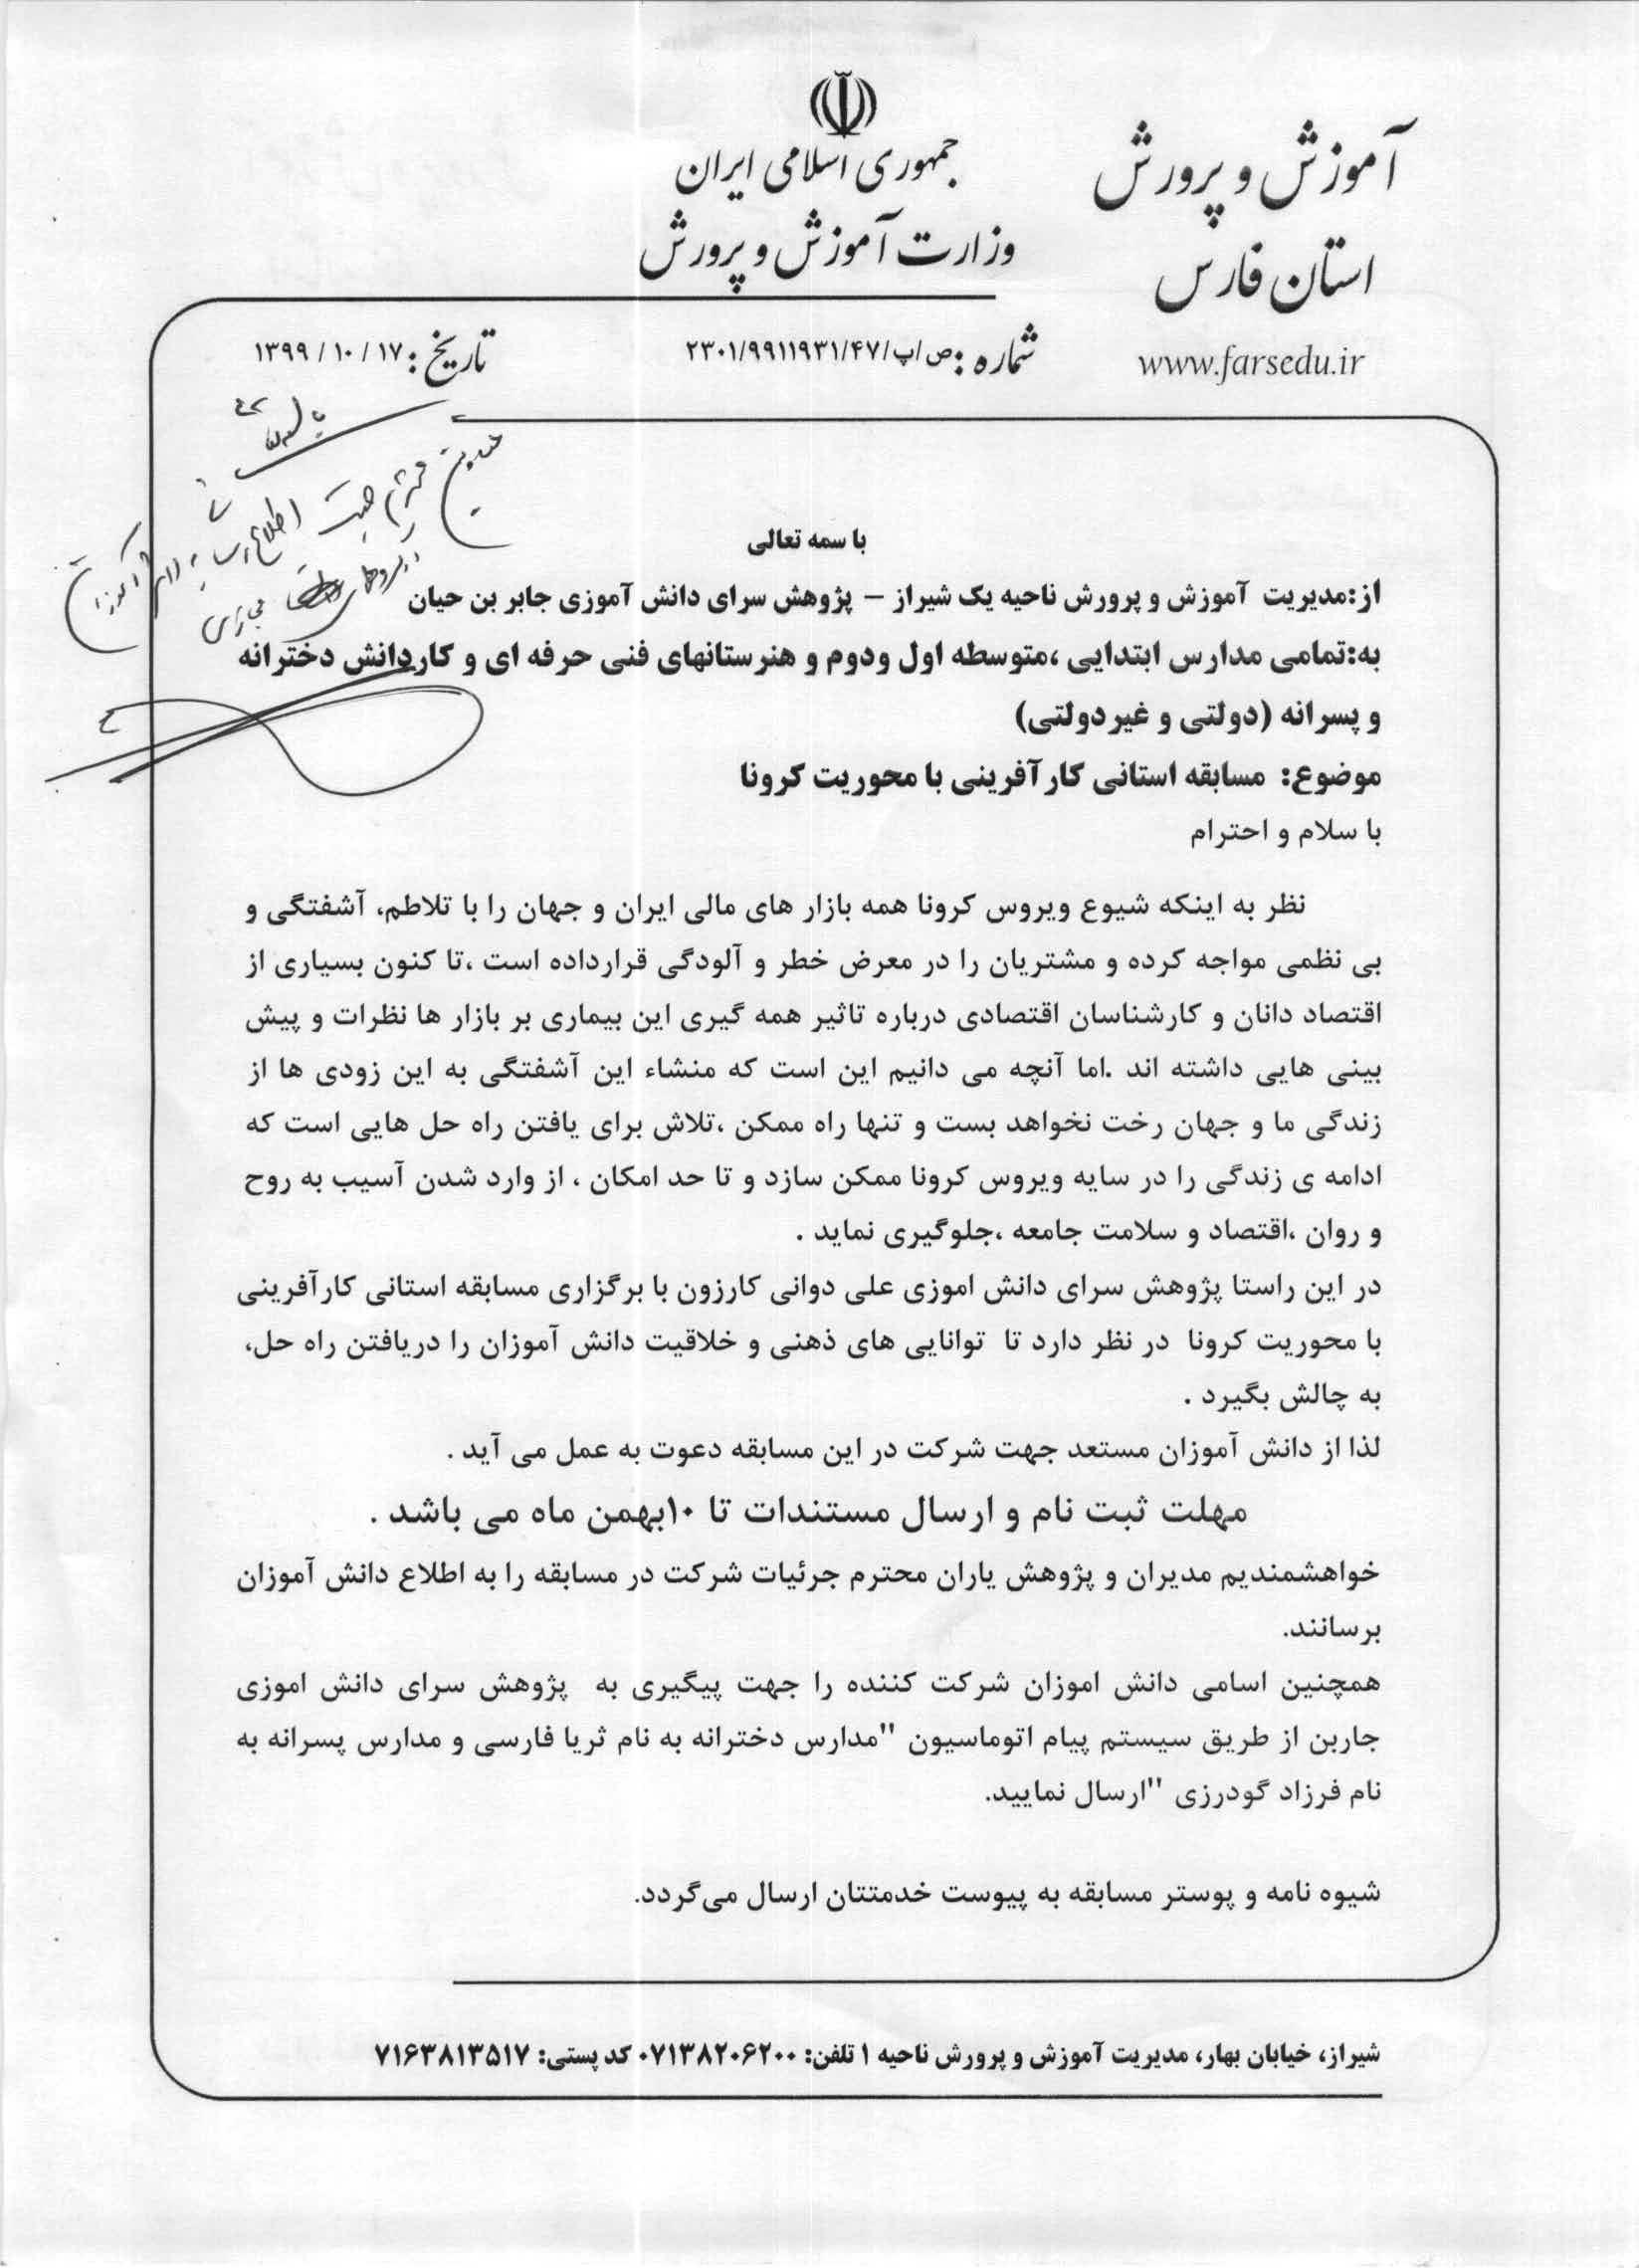 آموزش و پرورش
استان فارس
www.farsedu.ir
جمهوری اسلامی ایران
وزارت آموزش و پرورش
شماره: ص/پ/۲۳۰۱/۹۹۱۱۹۳۱/۴۷
تاریخ: ۱۳۹۹/۱۰/۱۷
محترم جهت اطلاع
با سمه تعالی
از:مدیریت آموزش و پرورش ناحیه یک شیراز – پژوهش سرای دانش آموزی جابر بن حیان
به:تمامی مدارس ابتدایی ،متوسطه اول ودوم و هنرستانهای فنی حرفه ای و کاردانش دخترانه
و پسرانه (دولتی و غیردولتی)
موضوع: مسابقه استانی کارآفرینی با محوریت کرونا
با سلام و احترام
نظر به اینکه شیوع ویروس کرونا همه بازار های مالی ایران و جهان را با تلاطم، آشفتگی و
بی نظمی مواجه کرده و مشتریان را در معرض خطر و آلودگی قرارداده است ،تا کنون بسیاری از
اقتصاد دانان و کارشناسان اقتصادی درباره تاثیر همه گیری این بیماری بر بازار ها نظرات و پیش
بینی هایی داشته اند .اما آنچه می دانیم این است که منشاء این آشفتگی به این زودی ها از
زندگی ما و جهان رخت نخواهد بست و تنها راه ممکن ،تلاش برای یافتن راه حل هایی است که
ادامه ی زندگی را در سایه ویروس کرونا ممکن سازد و تا حد امکان ، از وارد شدن آسیب به روح
و روان ،اقتصاد و سلامت جامعه ،جلوگیری نماید .
در این راستا پژوهش سرای دانش اموزی علی دوانی کارزون با برگزاری مسابقه استانی کارآفرینی
با محوریت کرونا در نظر دارد تا توانایی های ذهنی و خلاقیت دانش آموزان را دریافتن راه حل،
به چالش بگیرد .
لذا از دانش آموزان مستعد جهت شرکت در این مسابقه دعوت به عمل می آید .
مهلت ثبت نام و ارسال مستندات تا ۱۰بهمن ماه می باشد .
خواهشمندیم مدیران و پژوهش یاران محترم جرئیات شرکت در مسابقه را به اطلاع دانش آموزان
برسانند.
همچنین اسامی دانش اموزان شرکت کننده را جهت پیگیری به پژوهش سرای دانش اموزی
جاربن از طریق سیستم پیام اتوماسیون "مدارس دخترانه به نام ثریا فارسی و مدارس پسرانه به
نام فرزاد گودرزی "ارسال نمایید.
شیوه نامه و پوستر مسابقه به پیوست خدمتتان ارسال می‌گردد.
شیراز، خیابان بهار، مدیریت آموزش و پرورش ناحیه ۱ تلفن: ۰۷۱۳۸۲۰۶۲۰۰ کد پستی: ۷۱۶۳۸۱۳۵۱۷